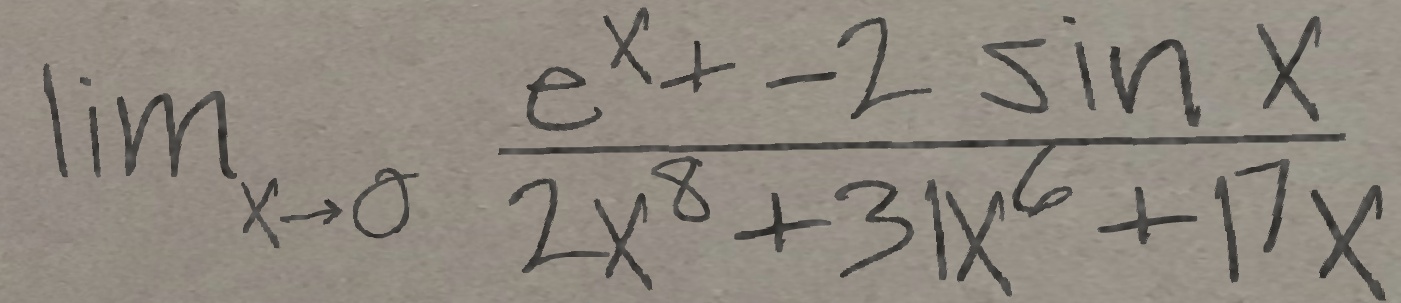 \lim_{x \to 0} \frac{e^x + -2 \sin x}{2x^8 + 31x^6 + 17x}